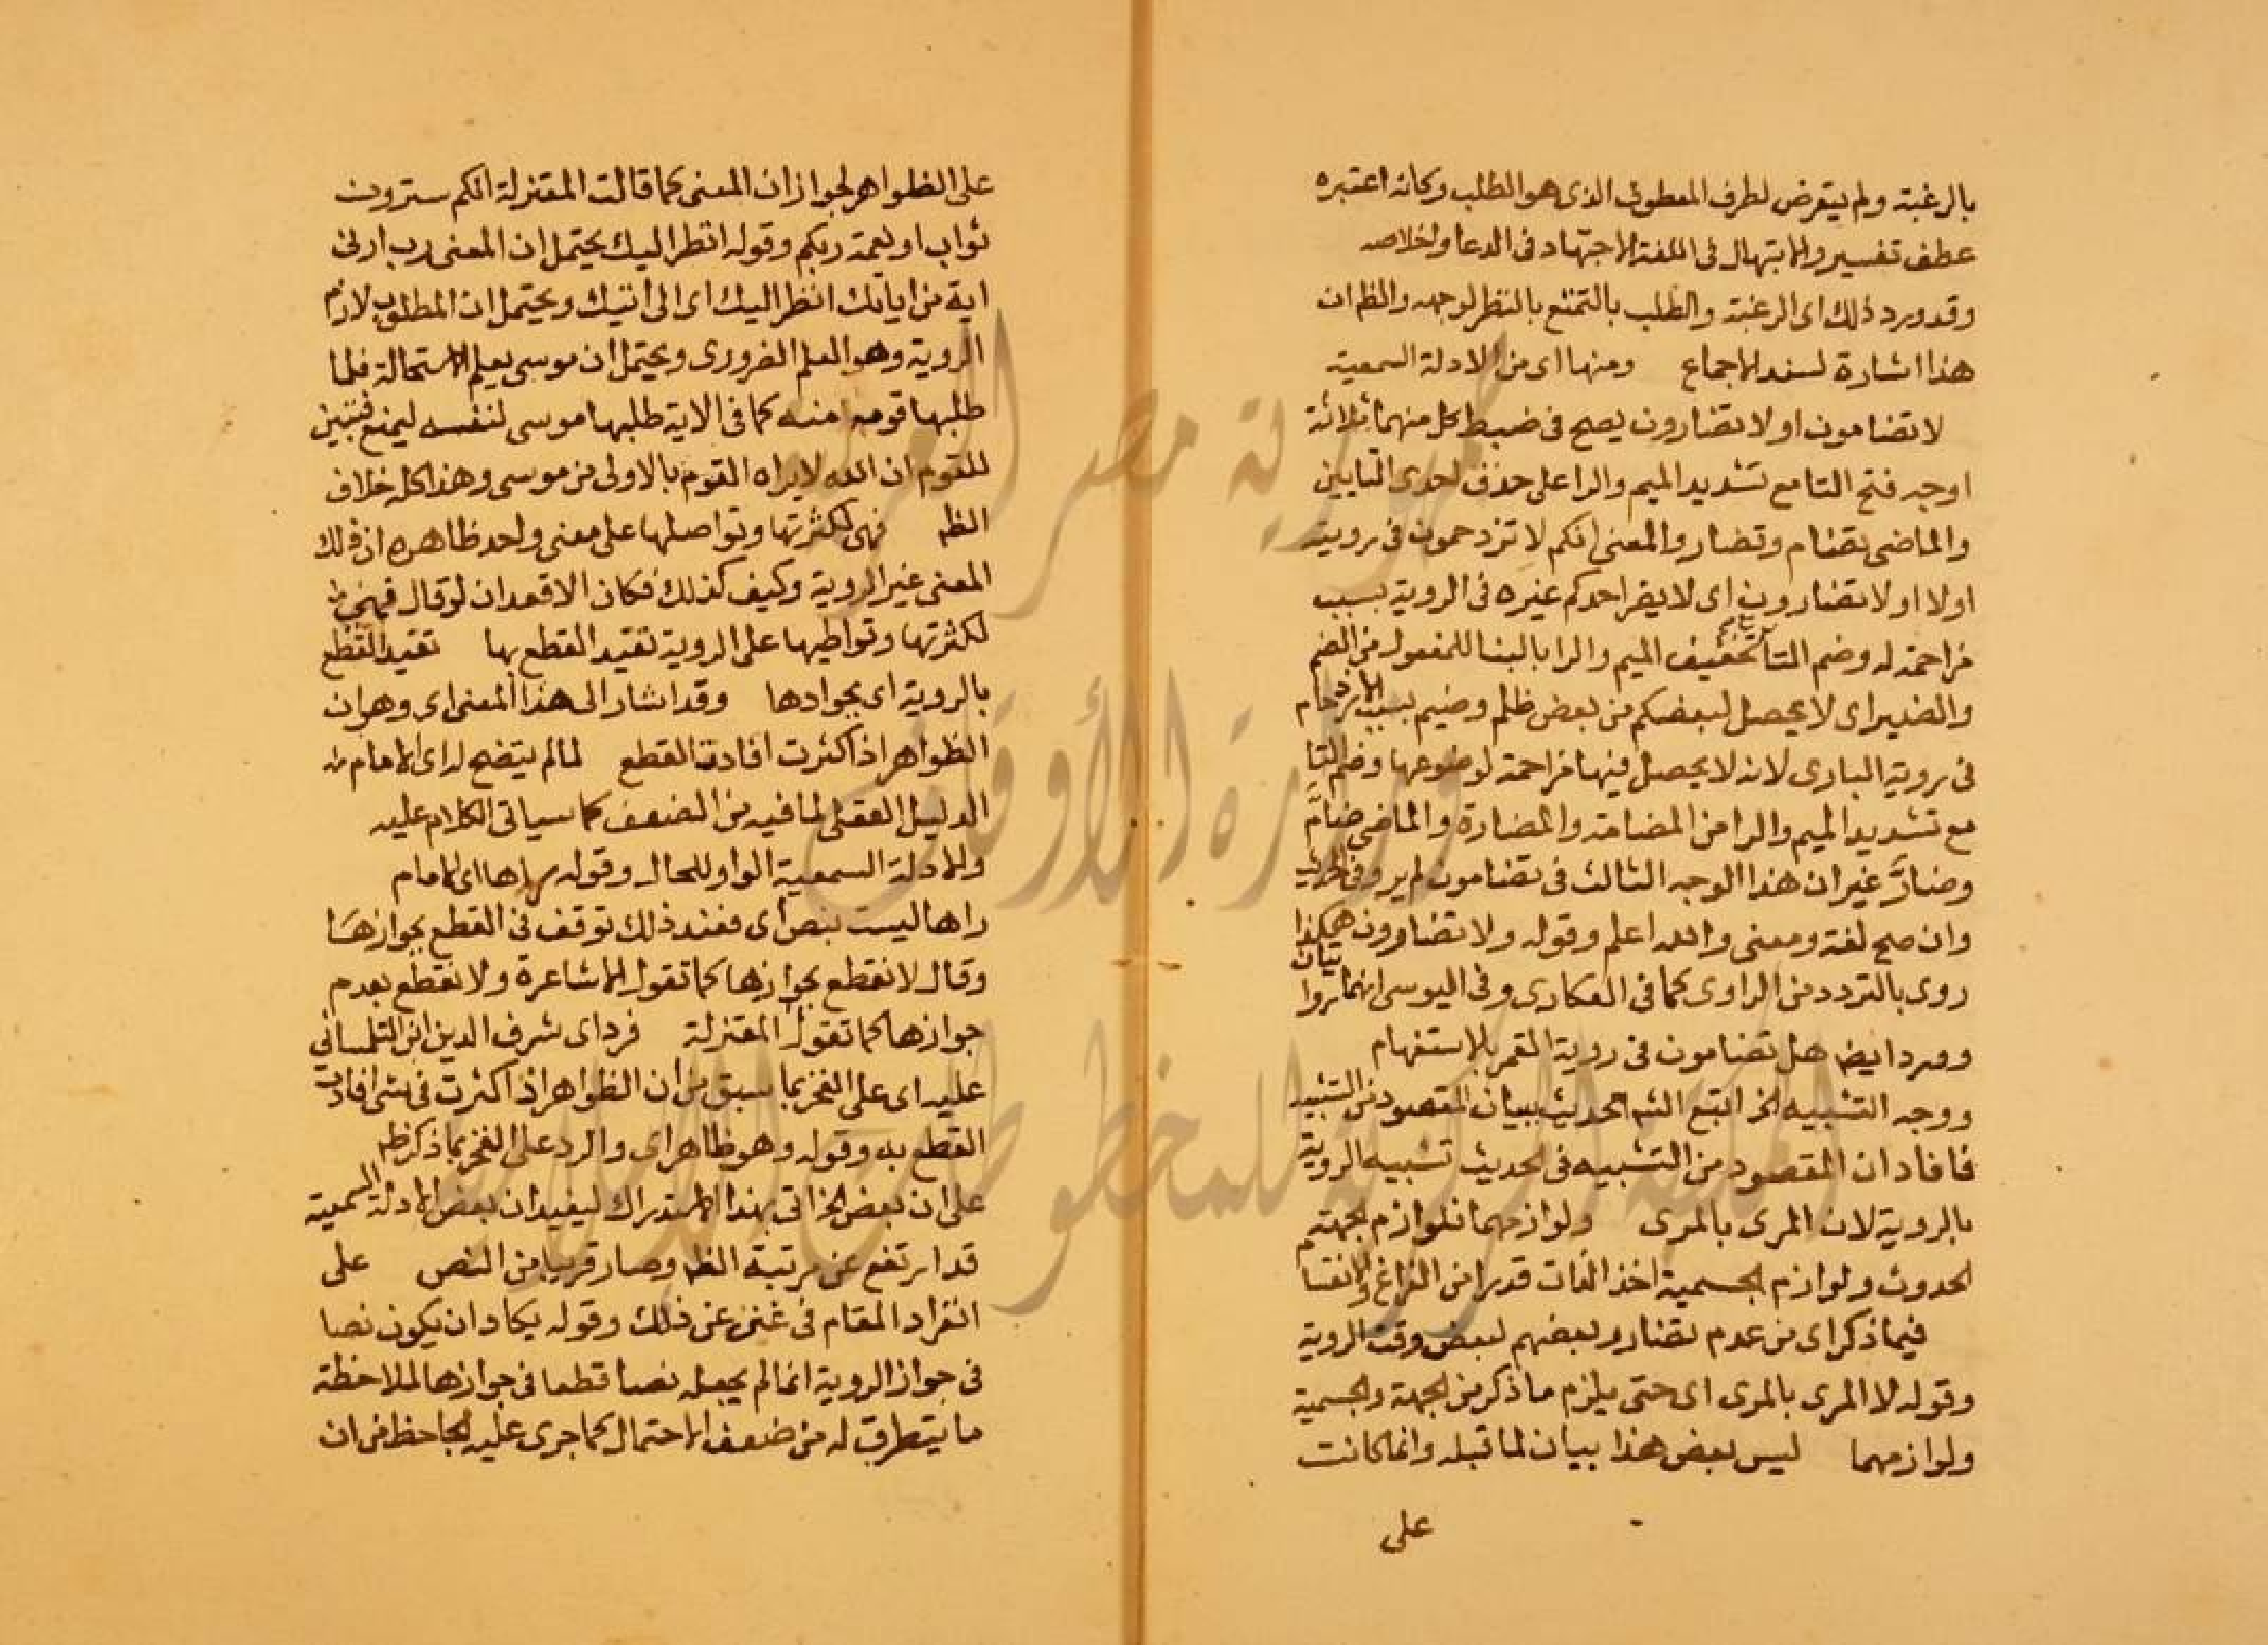 بالرغبة ولم يتعرض لطرف المعطوف الذى هو الطلب وكانه اعتبره
عطف تفسير والابتهال فى اللغة الاجتهاد فى الدعا واخلاصه
وقد ورد ذلك اى الرغبة والطلب بالتمتع بالنظر لوجهه والظ ان
هذا اشارة لسند الاجماع ومنها اى من الادلة السمعية
لا تضامون او لا تضارون يصح فى ضبط كل منهما ثلاثة
اوجه فتح التا مع تشديد الميم والرا على حذف احدى التايين
والماضى تضام وتضار والمعنى انكم لا تزدحمون فى رويته
اولا او لا تضارون اى لا يضر احدكم غيره فى الروية بسبب
مزاحمة له وضم التا مع تخفيف الميم والرا بالبنا للمفعول من الضم
والضير اى لا يحصل لبعضكم من بعض ظلم وضيم بسبب الازدحام
فى روية البارى لانه لا يحصل فيها مزاحمة لوضوعها وضم التا
مع تشديد الميم والرا من المضامة والمضارة والماضى ضامَّ
وضارَّ غير ان هذا الوجه الثالث فى تضامون لم يرو فى الحديث
وان صح لغة ومعنى والله اعلم وقوله ولا تضارون هكذا
روى بالتردد من الراوى كما فى العكارى وفى اليوسى انهما روايتان
وورد ايضا هل تضامون فى روية القمر بالاستفهام
ووجه التشبيه الخ اتبع الشم الحديث ببيان المقصود من التشبيه
فافاد ان المقصود من التشبيه فى الحديث تشبيه الروية
بالروية لان المرى بالمرى ولوازمهما فلوازم الجهة
الحدوث ولوازم الجسمية اخذ الذات قدرا من الفراغ والانقسا
فيما ذكر اى من عدم تضارر بعضهم لبعض وقت الروية
وقوله لا المرى بالمرى اى حتى يلزم ما ذكر من الجهة والجسمية
ولوازمهما ليس بعض هذا بيان لما قبله وانما كانت
على
على الظواهر لجواز ان المعنى كما قالت المعتزلة انكم سترون
ثواب او نعمة ربكم وقوله انظر اليك يحتمل ان المعنى رب ارنى
اية من اياتك انظر اليك اى الى ايتك ويحتمل ان المطلوب لازم
الروية وهو العلم الضرورى ويحتمل ان موسى يعلم الاستحالة فلما
طلبها قومه منه كما فى الاية طلبها موسى لنفسه ليمنع فيتبين
للقوم ان الله لا يراه القوم بالاولى من موسى وهذا كله خلاف
الظ فهى لكثرتها وتواصلها على معنى واحد ظاهره ان ذلك
المعنى غير الروية وكيف كذلك فكان الاقعد ان لو قال فهى
لكثرتها وتواطيها على الروية تفيد القطع بها تفيد القطع
بالروية اى بجوازها وقد اشار الى هذا المعنى اى وهو ان
الظواهر اذا كثرت افادت القطع لما لم يتضح له اى الامام من
الدليل العقلى لما فيه من الضعف كما سياتى الكلام عليه
والادلة السمعية الواو للحال وقوله راها اى الامام
راها ليست بنص اى فعند ذلك توقف فى القطع بجوازها
وقال لا نقطع بجوازها كما تقول الاشاعرة ولا نقطع بعدم
جوازها كما تقول المعتزلة فرد اى شرف الدين ابن التلمسانى
عليه اى على الفخر بما سبق من ان الظواهر اذا كثرت فى شى افادت
القطع به وقوله وهو ظاهر اى والرد على الفخر بما ذكر ظ
على ان بعض الخ اتى بهذا الاستدراك ليفيد ان بعض الادلة السمعية
قد ارتفع عن مرتبة الظ وصار قريبا من النص على
انفراد المقام فى غنى عن ذلك وقوله يكاد ان يكون نصا
فى جواز الروية انما لم يجعله نصا قطعا فى جوازها لملاحظة
ما يتطرق له من ضعف الاحتمال كما جرى عليه الجاحظ من ان
جمهورية مصر العربية
وزارة الأوقاف
المكتبة المركزية للمخطوطات الإسلامية